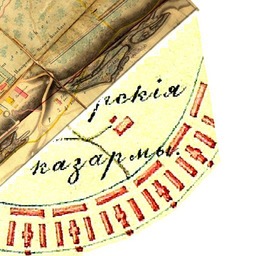 рскія
казармы.